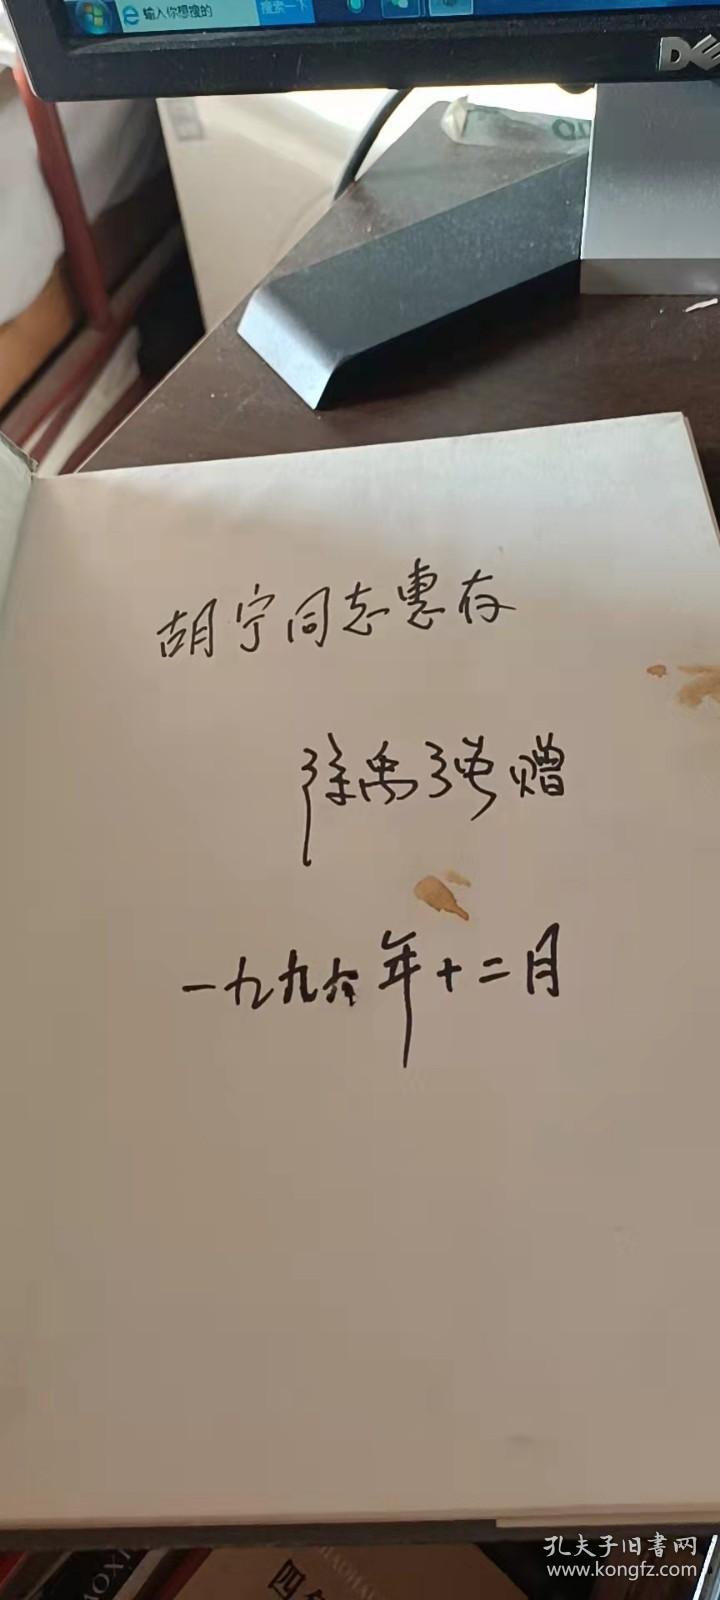 输入你想搜的
搜索一下
DELL
胡宁同志惠存
徐禹强赠
一九九六年十二月
孔夫子旧书网
www.kongfz.com